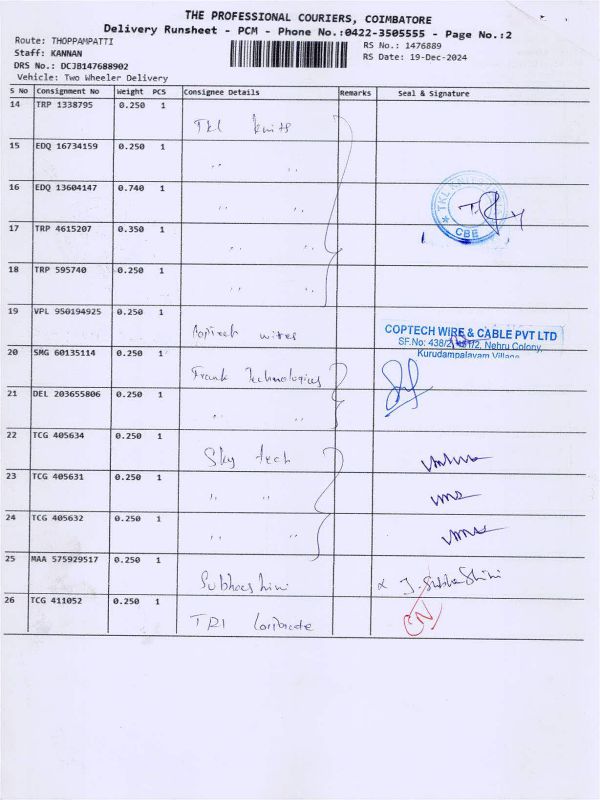 THE PROFESSIONAL COURIERS, COIMBATORE
Delivery Runsheet - PCM - Phone No.:0422-3505555 - Page No.:2
Route: THOPPAMPATTI
RS No.: 1476889
Staff: KANNAN
RS Date: 19-Dec-2024
DRS No.: DCJB147688902
Vehicle: Two Wheeler Delivery
S No Consignment No Weight PCS Consignee Details Remarks Seal & Signature
14 TRP 1338795 0.250 1
Tkl knits
15 EDQ 16734159 0.250 1
" "
16 EDQ 13604147 0.740 1
" "
TKL KNITS
CBE
17 TRP 4615207 0.350 1
" "
18 TRP 595740 0.250 1
" "
19 VPL 950194925 0.250 1
wires
COPTECH WIRE & CABLE PVT LTD
SF.No: 438/2, Nehru Colony,
Kurudampalayam Village
20 SMG 60135114 0.250 1
Frank Technologies
21 DEL 203655806 0.250 1
" "
22 TCG 405634 0.250 1
Sky tech
23 TCG 405631 0.250 1
" "
24 TCG 405632 0.250 1
" "
25 MAA 575929517 0.250 1
Subhashini J. Subha Shini
26 TCG 411052 0.250 1